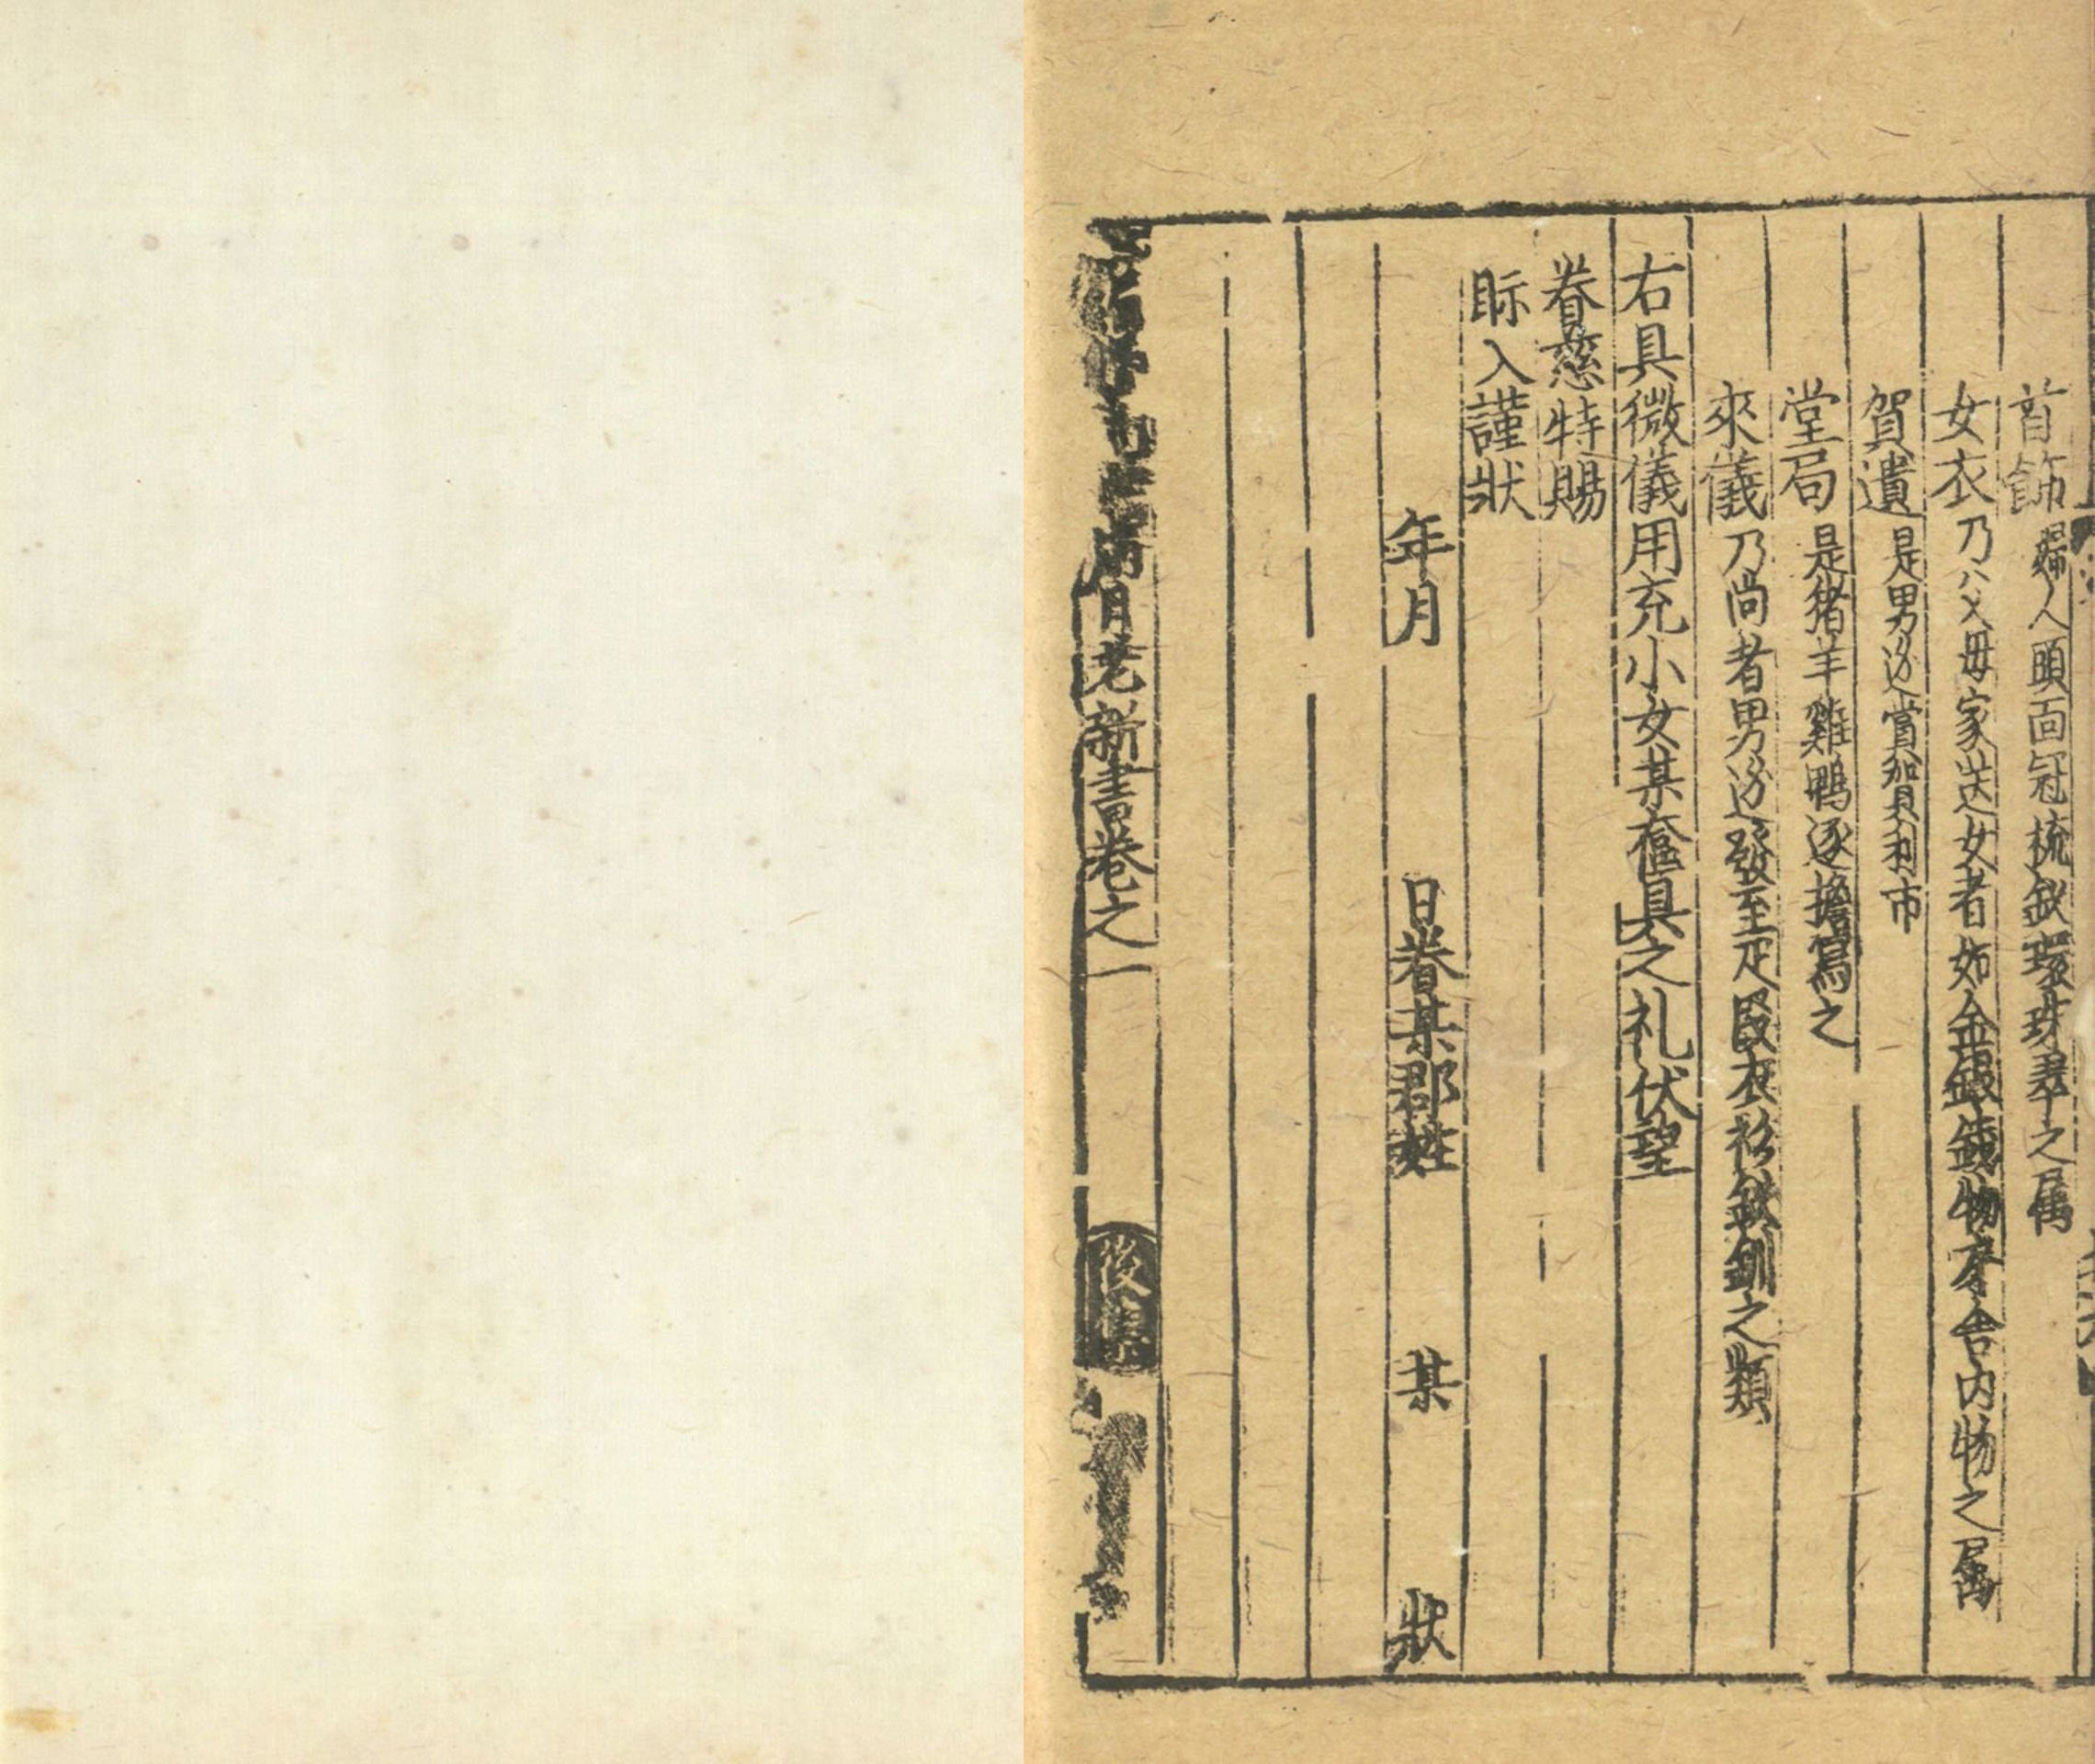 首飾婦人頭面冠梳釵環珠翠之属
女衣乃父母家送女者如金銀錢物房舍内物之属
賀遺是男边賞賀利市
堂局是猪羊雞鴨逐擔寫之
來儀乃尚者男边發至疋段衣衫釵釧之類
右具微儀用充小女某奩具之礼伏望
眷慈特賜
眎入謹狀
年月日眷某郡姓某狀
月老新書卷之一
後集